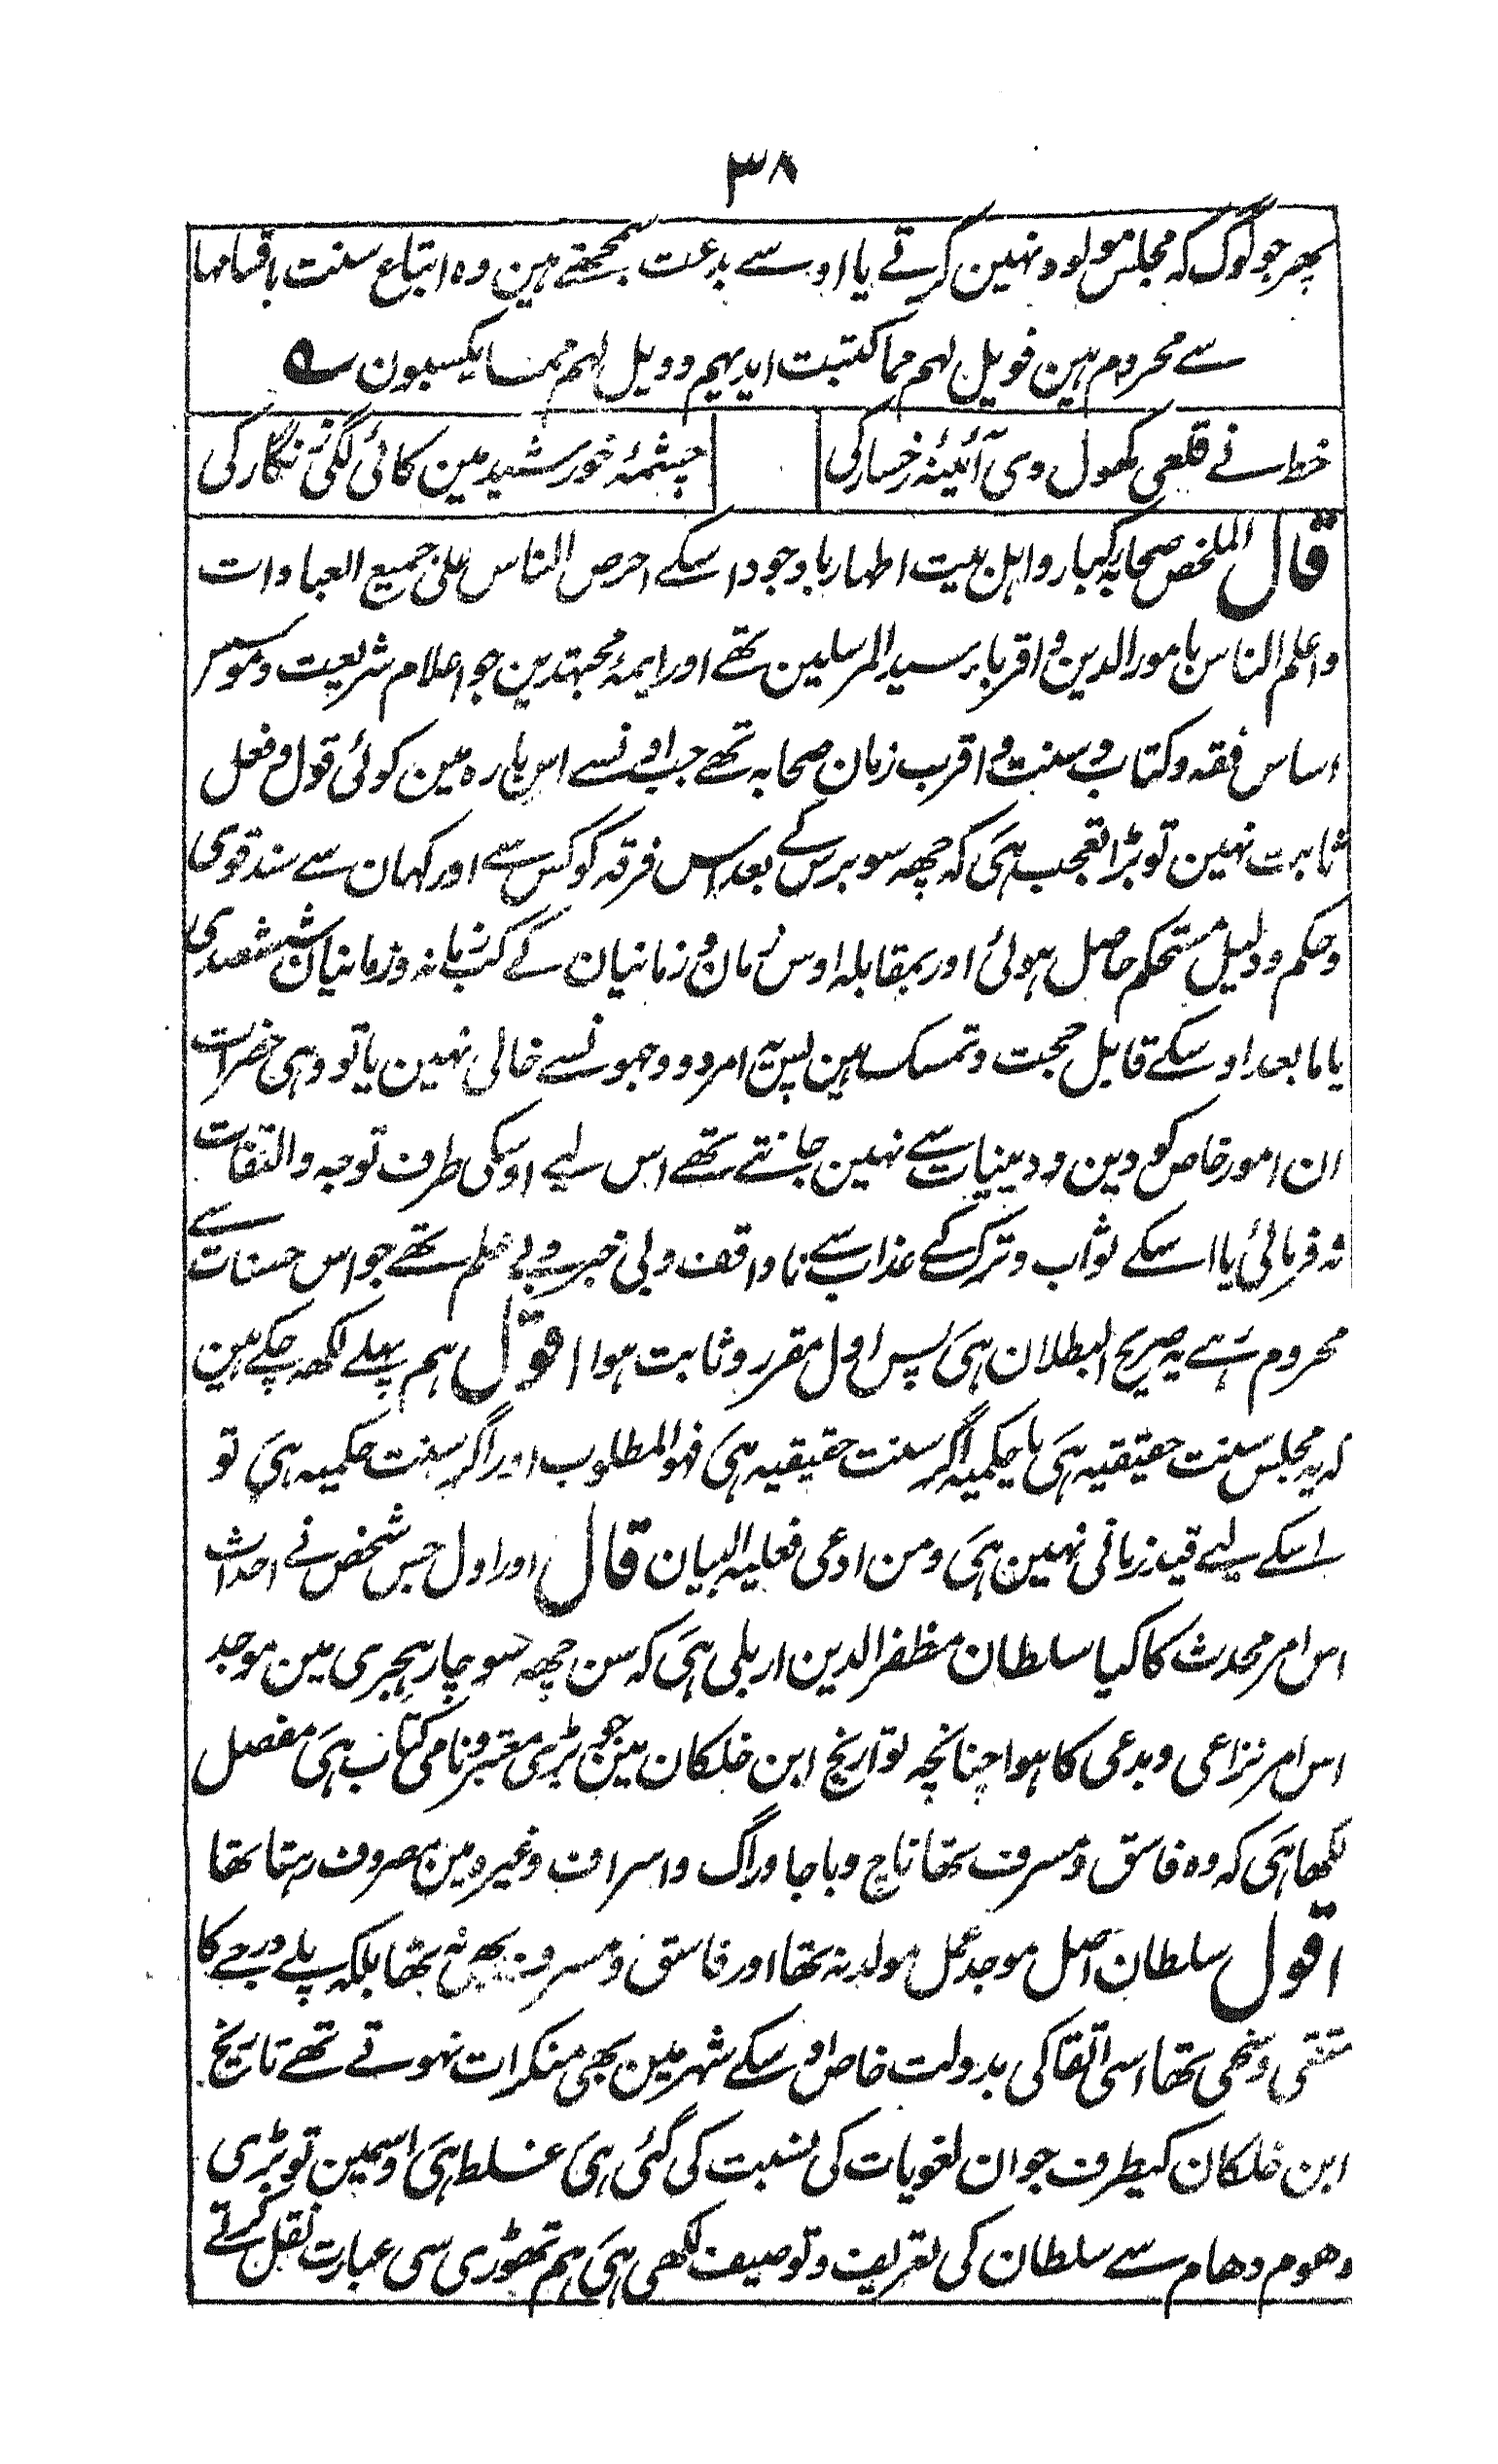 ۳۸
پھر جو لوگ کہ مجلس مولود نہین کرتے یا اوسے بدعت سمجھتے ہین وہ اتباع سنت باقسامہا
سے محروم ہین فویل لہم مما کتبت ایدیہم وویل لہم مما یکسبون ؎
خط نے قلعی کھول دی آئینۂ رخسار کی
چشمۂ خورشید مین کائی لگی زنگار کی
قال الملخص صحابہ کبار و اہل بیت اطہار باوجود اسکے احرص الناس علی جمیع العبادات
واعلم الناس بامور الدین و اقرباء سید المرسلین تھے اور ایمۂ مجتہدین جو اعلام شریعت و موسس
اساس فقہ و کتاب و سنت و اقرب زمان صحابہ تھے جب اونسے اس بارہ مین کوئی قول و فعل
ثابت نہین تو بڑا تعجب ہی کہ چھہ سو برس کے بعد اس فرقہ کو کس سے اور کہان سے سند قوی
وحکم و دلیل مستحکم حاصل ہوئی اور بمقابلہ اوس زمان و زمانیان کے کب زمانہ و زمانیان ششصدی
یا ما بعد اوسکے قابل حجت و تمسک ہین پس یہ امر دو وجہونسے خالی نہین یا تو وہی حضرات
ان امور خاص کو دین و دینیات سے نہین جانتے تھے اس لیے اوسکی طرف توجہ و التفات
نہ فرمائی یا اسکے ثواب و ترک کے عذاب سے ناواقف و بی خبر و بی علم تھے جو اس حسنات سے
محروم رہے یہ صریح البطلان ہی پس اول مقرر و ثابت ہوا اقول ہم پہلے لکھہ چکے ہین
کہ یہ مجلس سنت حقیقیہ ہی یا حکمیہ اگر سنت حقیقیہ ہی فہو المطلوب اور اگر سنت حکمیہ ہی تو
اسکے لیے قید زمانی نہین ہی ومن ادعی فعلیہ البیان قال اور اول جس شخص نے احداث
اس امر محدث کا کیا سلطان مظفر الدین اربلی ہی کہ سن چھہ سو چار ہجری مین موجد
اس امر نزاعی و بدعی کا ہوا چنانچہ تواریخ ابن خلکان مین جو بڑی معتبر و نامی کتاب ہی مفصل
لکھا ہی کہ وہ فاسق و مسرف تھا ناچ و باجا و راگ و اسراف وغیرہ مین مصروف رہتا تھا
اقول سلطان اصل موجد عمل مولد نہ تھا اور فاسق و مسرف بھی نہ تھا بلکہ پلے درجے کا
متقی و سخی تھا اسی اتقا کی بدولت خاص اوسکے شہر مین بھی منکرات نہوتے تھے تاریخ
ابن خلکان کیطرف جو ان لغویات کی نسبت کی گئی ہی غلط ہی اوسمین تو بڑی
دھوم دھام سے سلطان کی تعریف و توصیف لکھی ہی ہم تھوڑی سی عبارت نقل کرتے